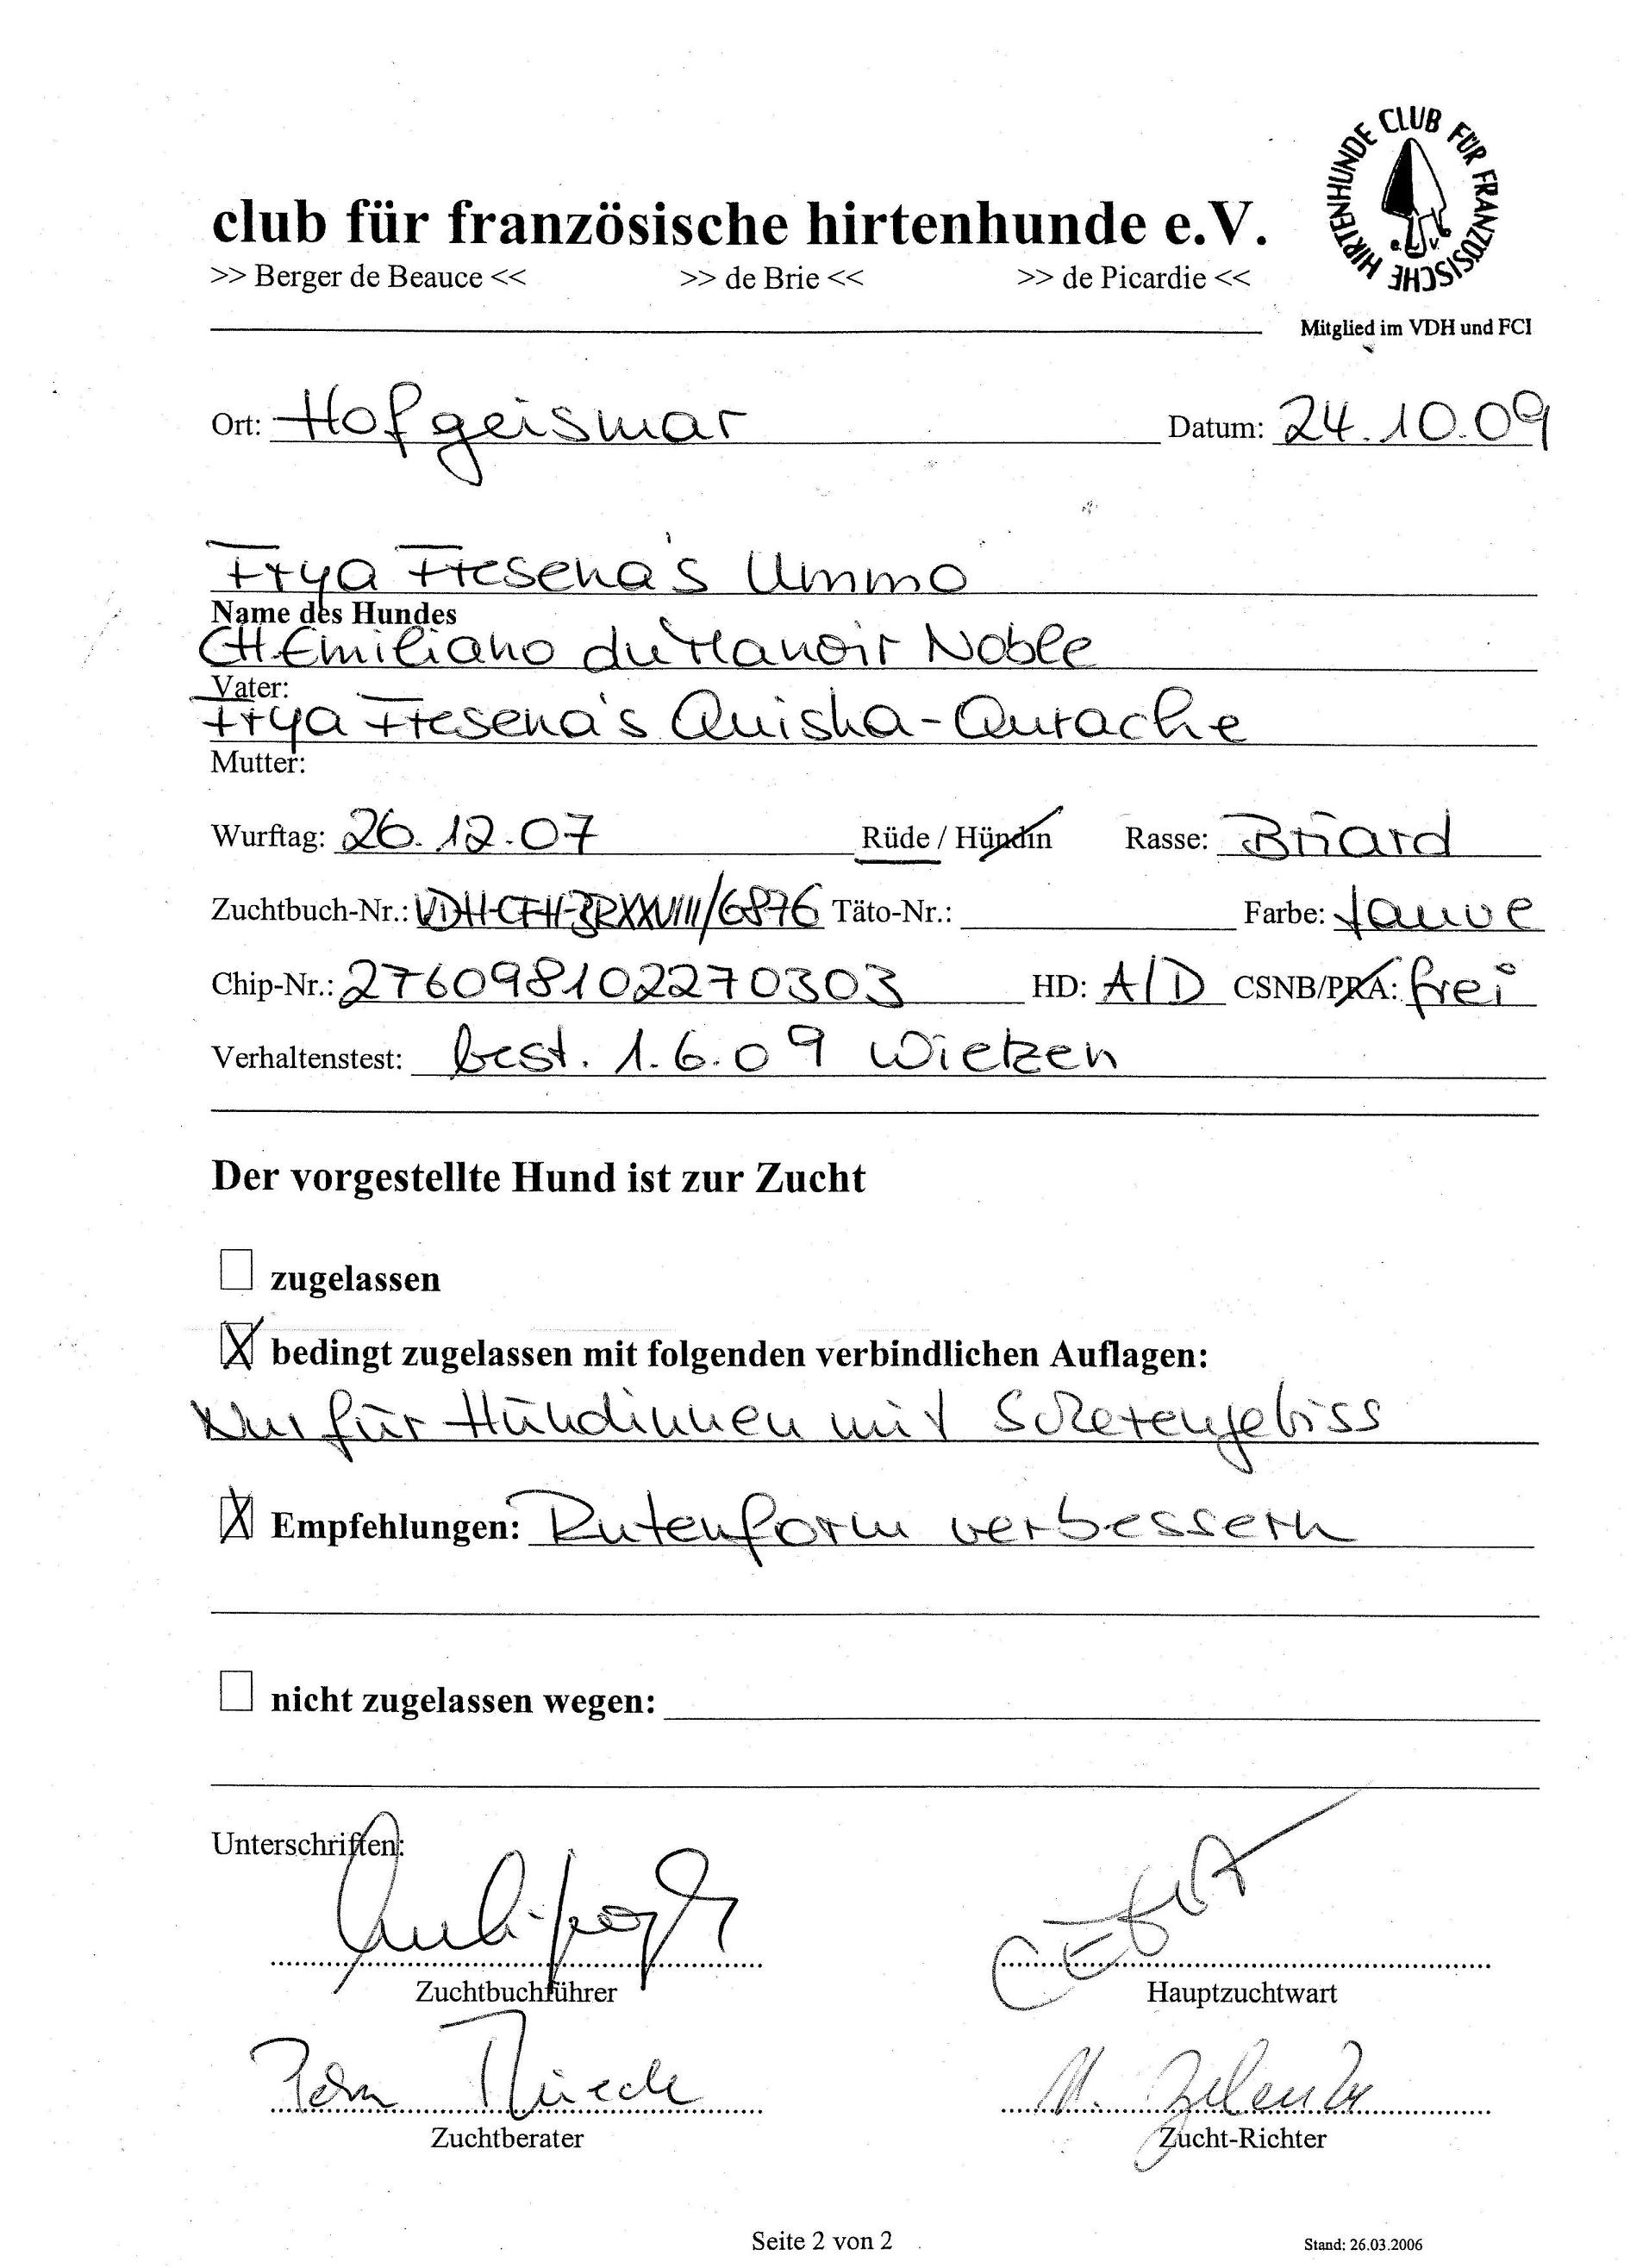 CLUB FÜR FRANZÖSISCHE HIRTENHUNDE e.V.
club für französische hirtenhunde e.V.
>> Berger de Beauce << >> de Brie << >> de Picardie <<
Mitglied im VDH und FCI
Ort: Hofgeismar Datum: 24.10.09
Frya Fresena's Ummo
Name des Hundes
CH. Emiliano du Manoir Noble
Vater:
Frya Fresena's Quisha-Qurache
Mutter:
Wurftag: 26.12.07 Rüde / Hündin Rasse: Briard
Zuchtbuch-Nr.: VDH-CFH-BRXXVIII/6876 Täto-Nr.: Farbe: fauve
Chip-Nr.: 276098102270303 HD: A/D CSNB/PRA: frei
Verhaltenstest: best. 1.6.09 Wietzen
Der vorgestellte Hund ist zur Zucht
zugelassen
X bedingt zugelassen mit folgenden verbindlichen Auflagen:
Nur für Hündinnen mit Scherengebiss
X Empfehlungen: Rutenform verbessern
nicht zugelassen wegen:
Unterschriften:
Zuchtbuchführer Hauptzuchtwart
Zuchtberater Zucht-Richter
Seite 2 von 2 Stand: 26.03.2006